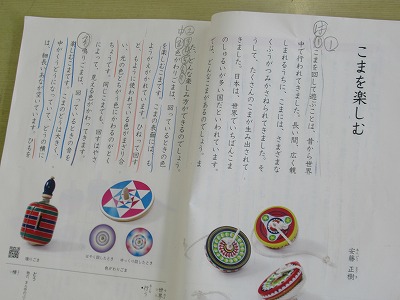 こまを楽しむ
安藤 正樹
こまを回して遊ぶことは、昔から世界
中で行われてきました。長い間、広く親
しまれるうちに、こまには、さまざまな
くふうがつみかさねられてきました。そ
うして、たくさんのこまが生み出されて
きました。日本は、世界でいちばんこま
のしゅるいが多い国だといわれています。
では、どんなこまがあるのでしょう。ま
た、どんな楽しみ方ができるのでしょう。
色がわりごまは、回っているときの色
を楽しむこまです。こまの表面には、も
ようがえがかれています。ひねって回す
と、もように使われている色がまざり合
い、元の色とちがう色にかわるのがとく
ちょうです。同じこまでも、回すはやさ
によって、見える色がかわってきます。
鳴りごまは、回っているときの音を
楽しむこまです。こまのどうは大きく、
中がくうどうになっていて、どうの横に
は、細長いあなが空いています。ひもを
色がわりごま
ゆっくり回したとき
はやく回したとき
鳴りごま